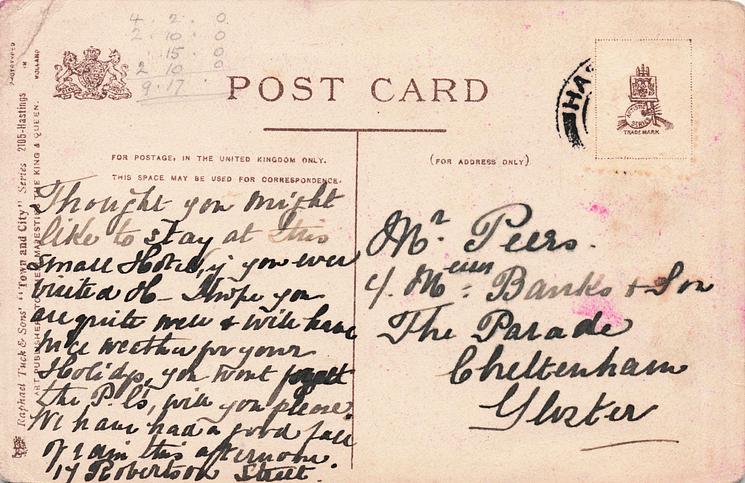 4 . 2 . 0.
2 . 10 . 0
. 15 . 0
2 10 0
9 . 17 .
POST CARD
HAS
TRADE MARK
FOR POSTAGE, IN THE UNITED KINGDOM ONLY.
THIS SPACE MAY BE USED FOR CORRESPONDENCE.
(FOR ADDRESS ONLY)
Raphael Tuck & Sons' "Town and City" Series 2105-Hastings
ART PUBLISHERS TO THEIR MAJESTIES THE KING & QUEEN.
IN
HOLLAND
Thought you might
like to stay at this
small Hotel, if you ever
visited H— I hope you
are quite well & will have
nice weather for your
Holidays, you wont forget
the P. C's, will you please.
We have had a good fall
of rain this afternoon.
17 Robertson Street.
Mr. Peers.
4. Messrs Banks & Son
The Parade
Cheltenham
Gloster